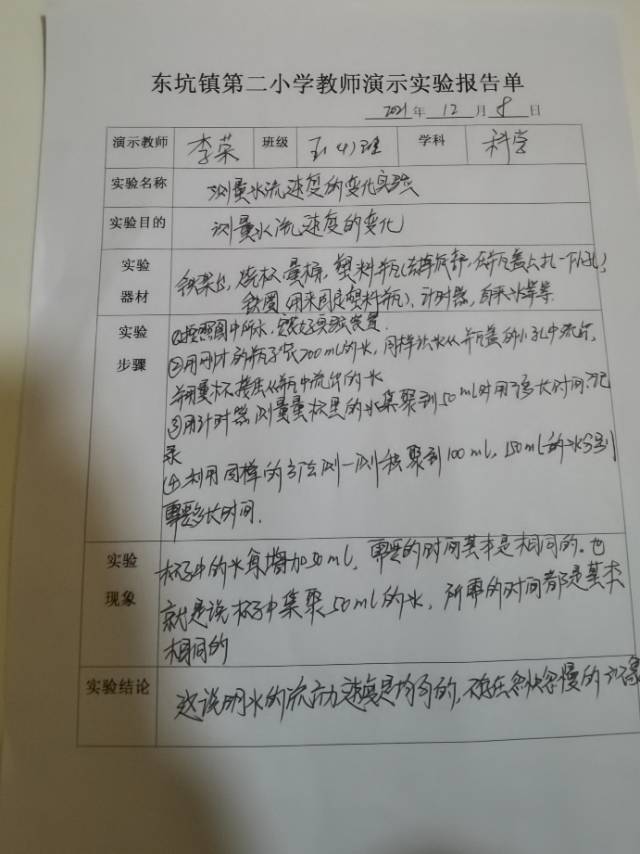 东坑镇第二小学教师演示实验报告单
2021年 12 月 8 日
演示教师 李荣 班级 五(4)班 学科 科学
实验名称 测量水流速度的变化实验
实验目的 测量水流速度的变化
实验器材 铁架台,烧杯,量桶,塑料瓶(去掉底部,在瓶盖上扎一个小孔)
铁圈(用来固定塑料瓶)、计时器,自来水等等.
实验步骤 ①按照图中所示,安装好实验装置.
②用刚才的瓶子装200ml的水,同样让水从瓶盖的小孔中流出,
并用量杯接住从瓶中流出的水
③用计时器测量量杯里的水集聚到50ml时用了多长时间?记
录
④利用同样的方法测一测积聚到100ml,150ml的水分别
需要多长时间.
实验现象 杯子中的水每增加50ml,需要的时间基本是相同的.也
就是说杯子中集聚50ml的水,所需的时间都是基本
相同的
实验结论 这说明水的流动速度是均匀的,不存在忽快忽慢的